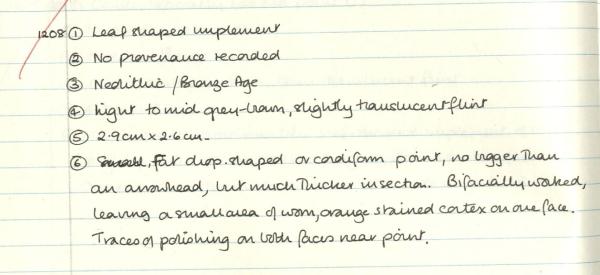 1208 ① Leaf shaped implement
② No provenance recorded
③ Neolithic / Bronze Age
④ Light to mid grey-brown, slightly translucent flint
⑤ 2.9cm x 2.6cm.
⑥ Small, Fat drop-shaped or cordiform point, no bigger than
an arrowhead, but much thicker in section. Bifacially worked,
leaving a small area of worn, orange stained cortex on one face.
Traces of polishing on both faces near point.